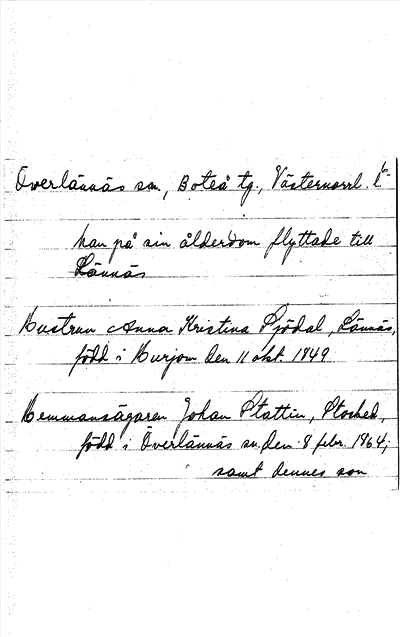 Överlännäs sn, Boteå tg., Västernorrl. l.
han på sin ålderdom flyttade till
Lännäs
Hustrun Anna Kristina Sjödal, Lännäs,
född i Hurjom den 11 okt. 1849
Hemmansägaren Johan Stattin, Storhed,
född i Överlännäs sn. den 8 febr. 1864;
samt dennes son